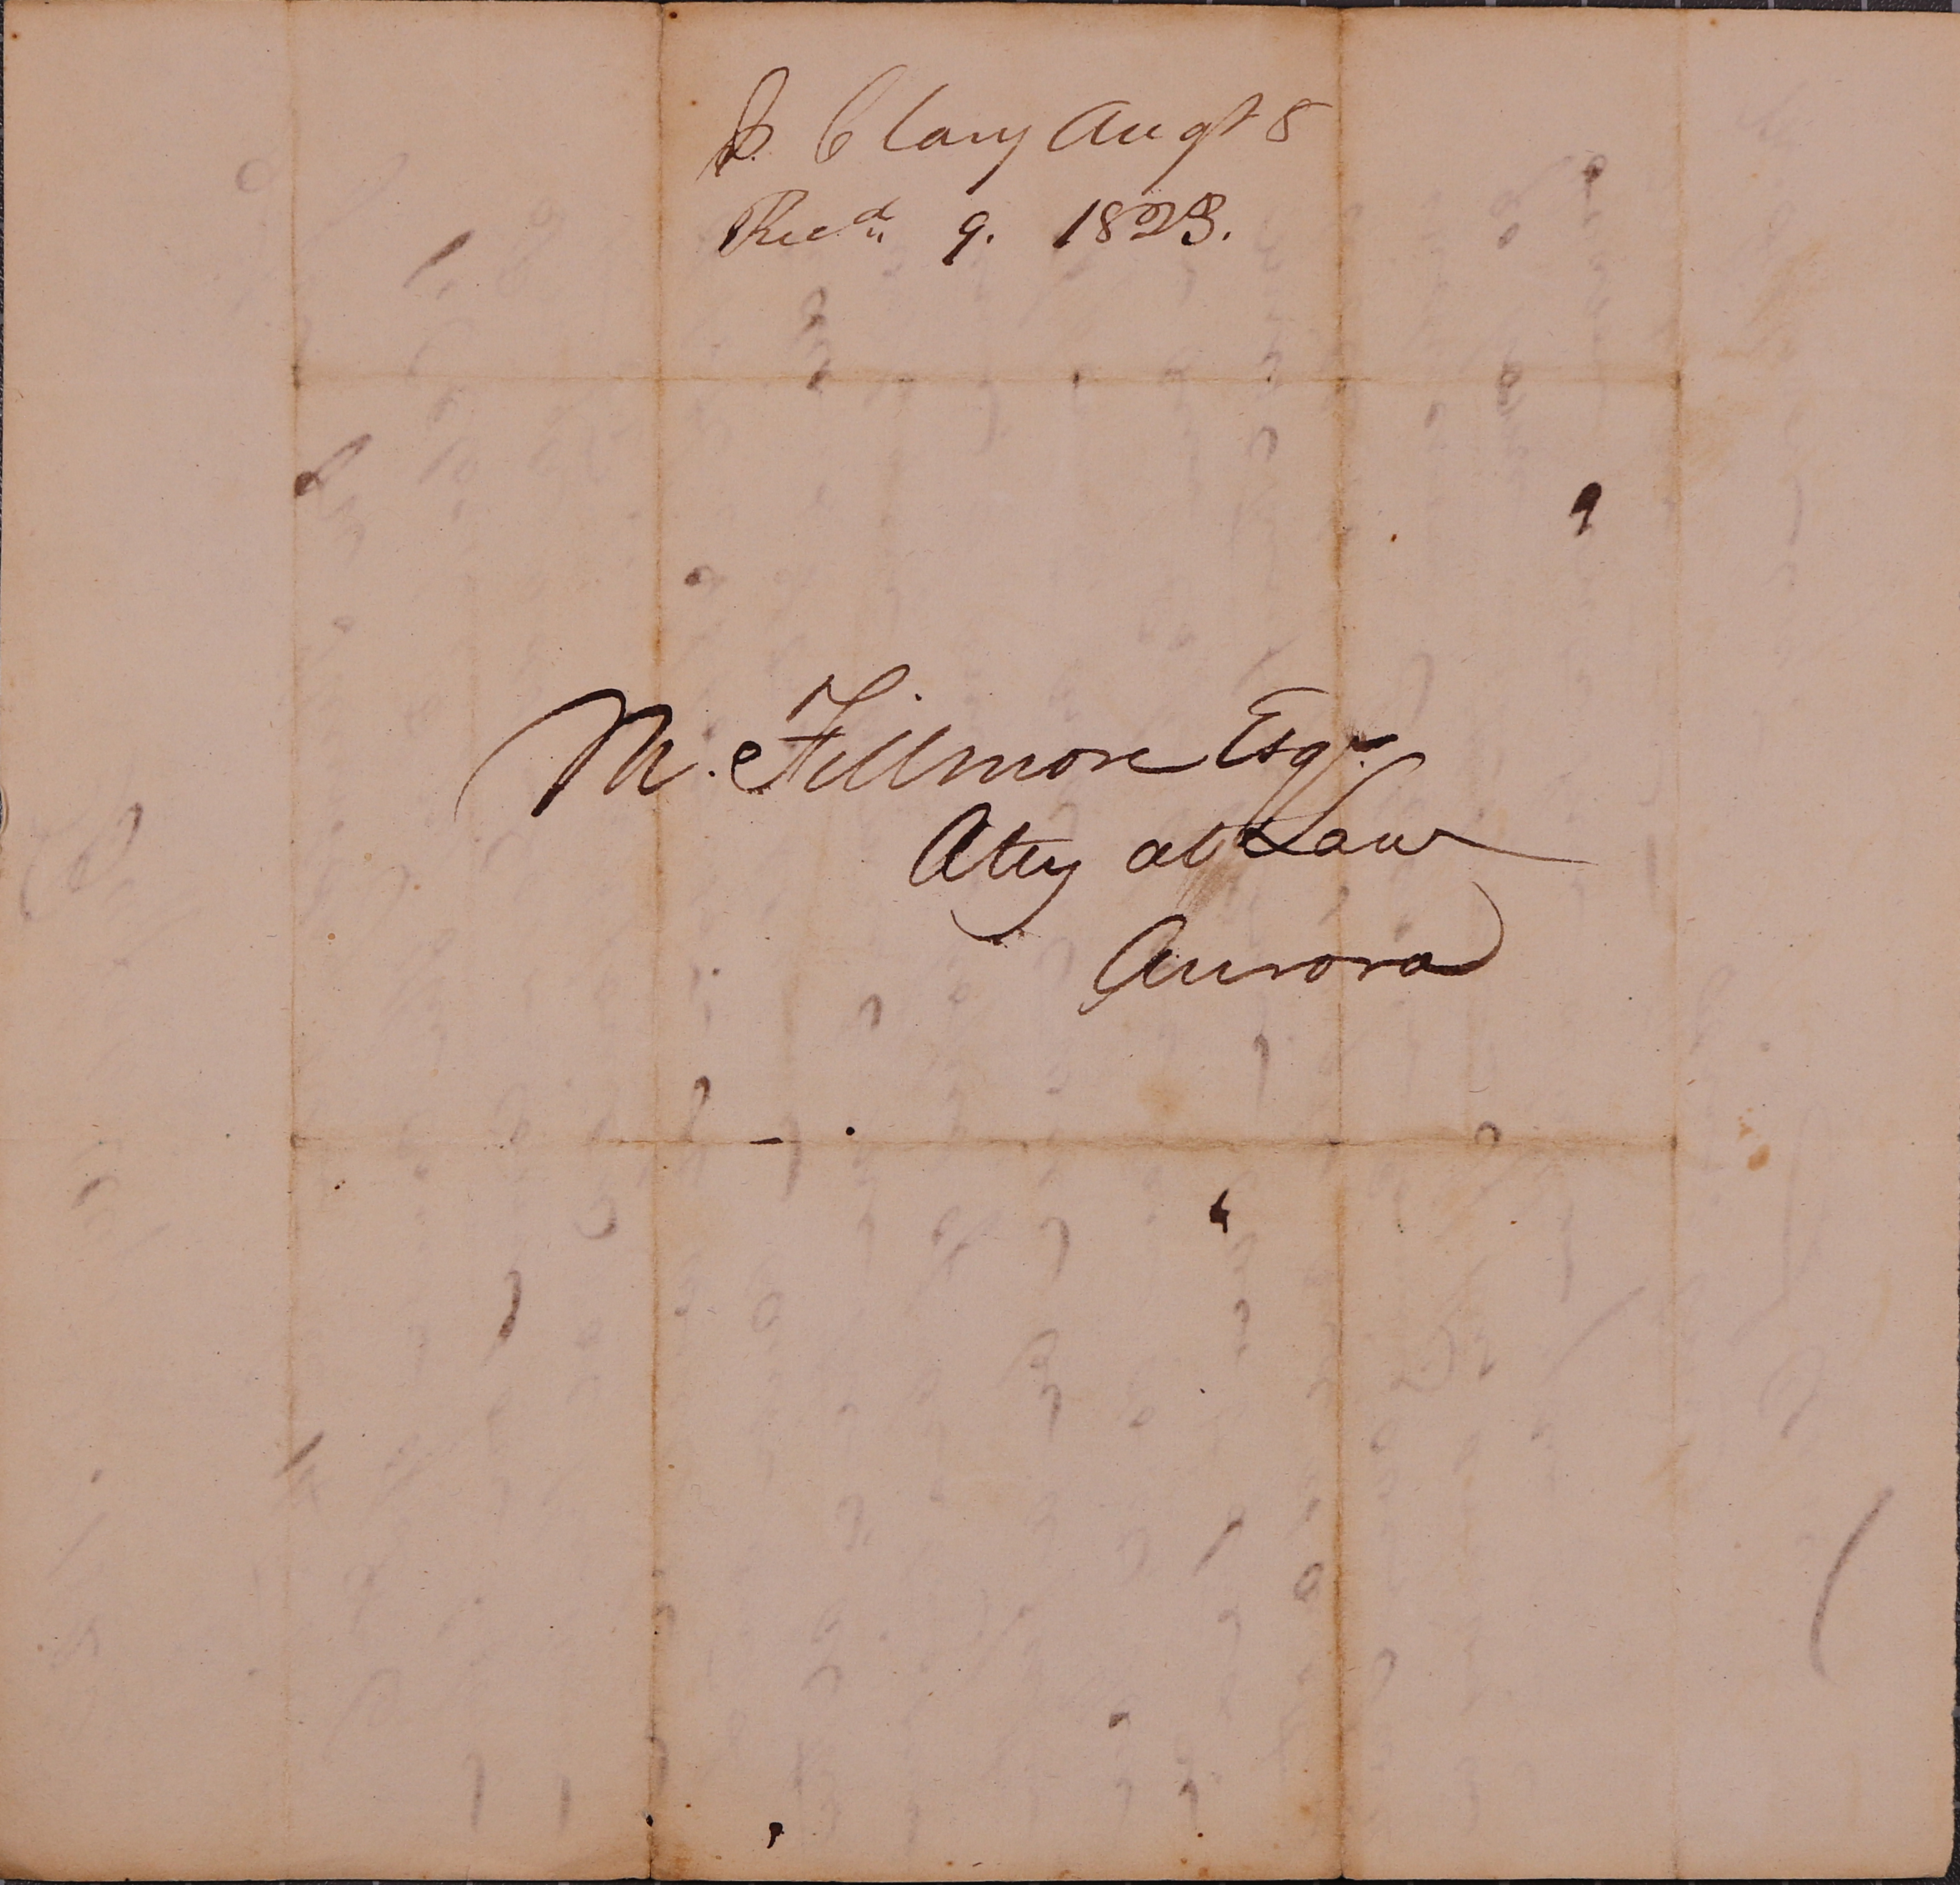 J. Clary Augt 8
Recd. 9. 1823.
M. Fillmore Esqr.
Atty at Law
Aurora